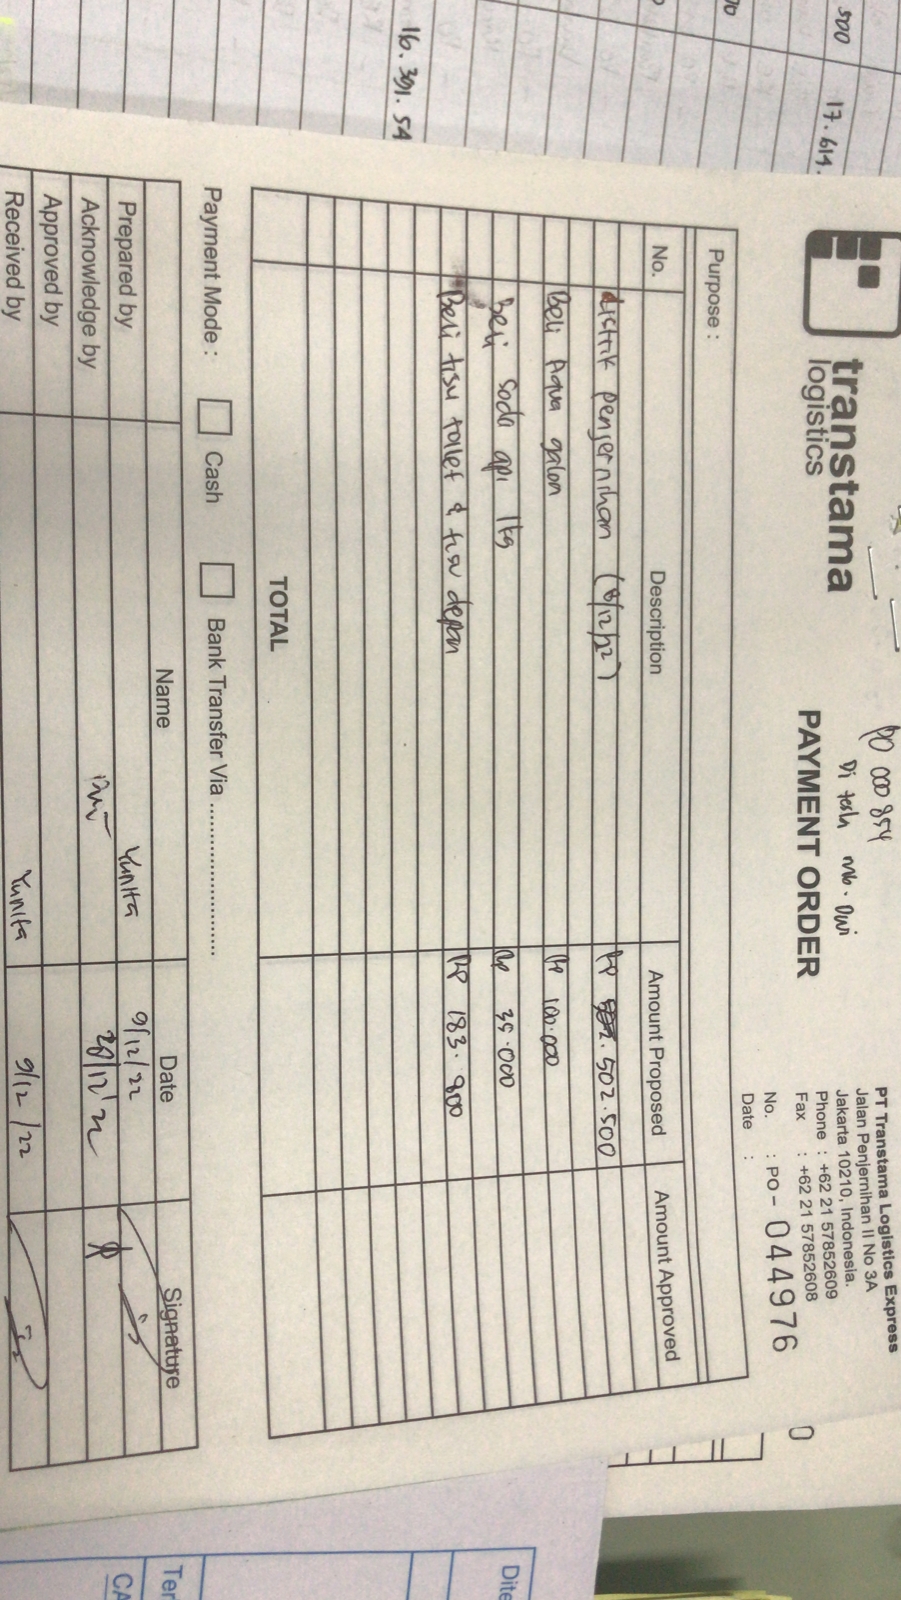 16.391.54
500
17.614.
transtama
logistics
PO 000854
Di tesh mb. Dwi
PAYMENT ORDER
PT Transtama Logistics Express
Jalan Penjernihan II No 3A
Jakarta 10210, Indonesia.
Phone : +62 21 57852609
Fax : +62 21 57852608
No. : PO - 044976
Date :
Purpose :
No. Description Amount Proposed Amount Approved
Listrik penjernihan (8/12/22) Rp 502.500
Beli Aqua galon Rp 100.000
Beli soda api 1kg Rp 35.000
Beli tisu toilet & tisu depan Rp 183.800
TOTAL
Payment Mode : Cash Bank Transfer Via ......................
Name Date Signature
Prepared by Yunita 9/12/22
Acknowledge by Dwi 28/12/22
Approved by
Received by Yunita 9/12/22
Dite
Ter
CA